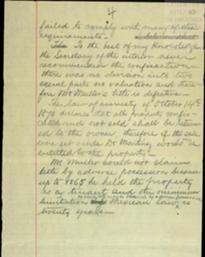 4
failed to comply with many of their
requirements.
To the best of my knowledge
the Secretary of the interior never
recommended the confiscation
there was no division into two
equal parts no valuation and there-
for Mr Muller's title is defective.
The law of amnesty of October 14th
1870 declares that all property
and not sold shall be
to the owner, therefore if the sale
were set aside Dr Martinez would be
entitled to the property.
Mr. Muller could not claim
title by adverse possession because
up to 1865 he held the property
as a tenant and the minimum
limitation
Mexican being
twenty years.